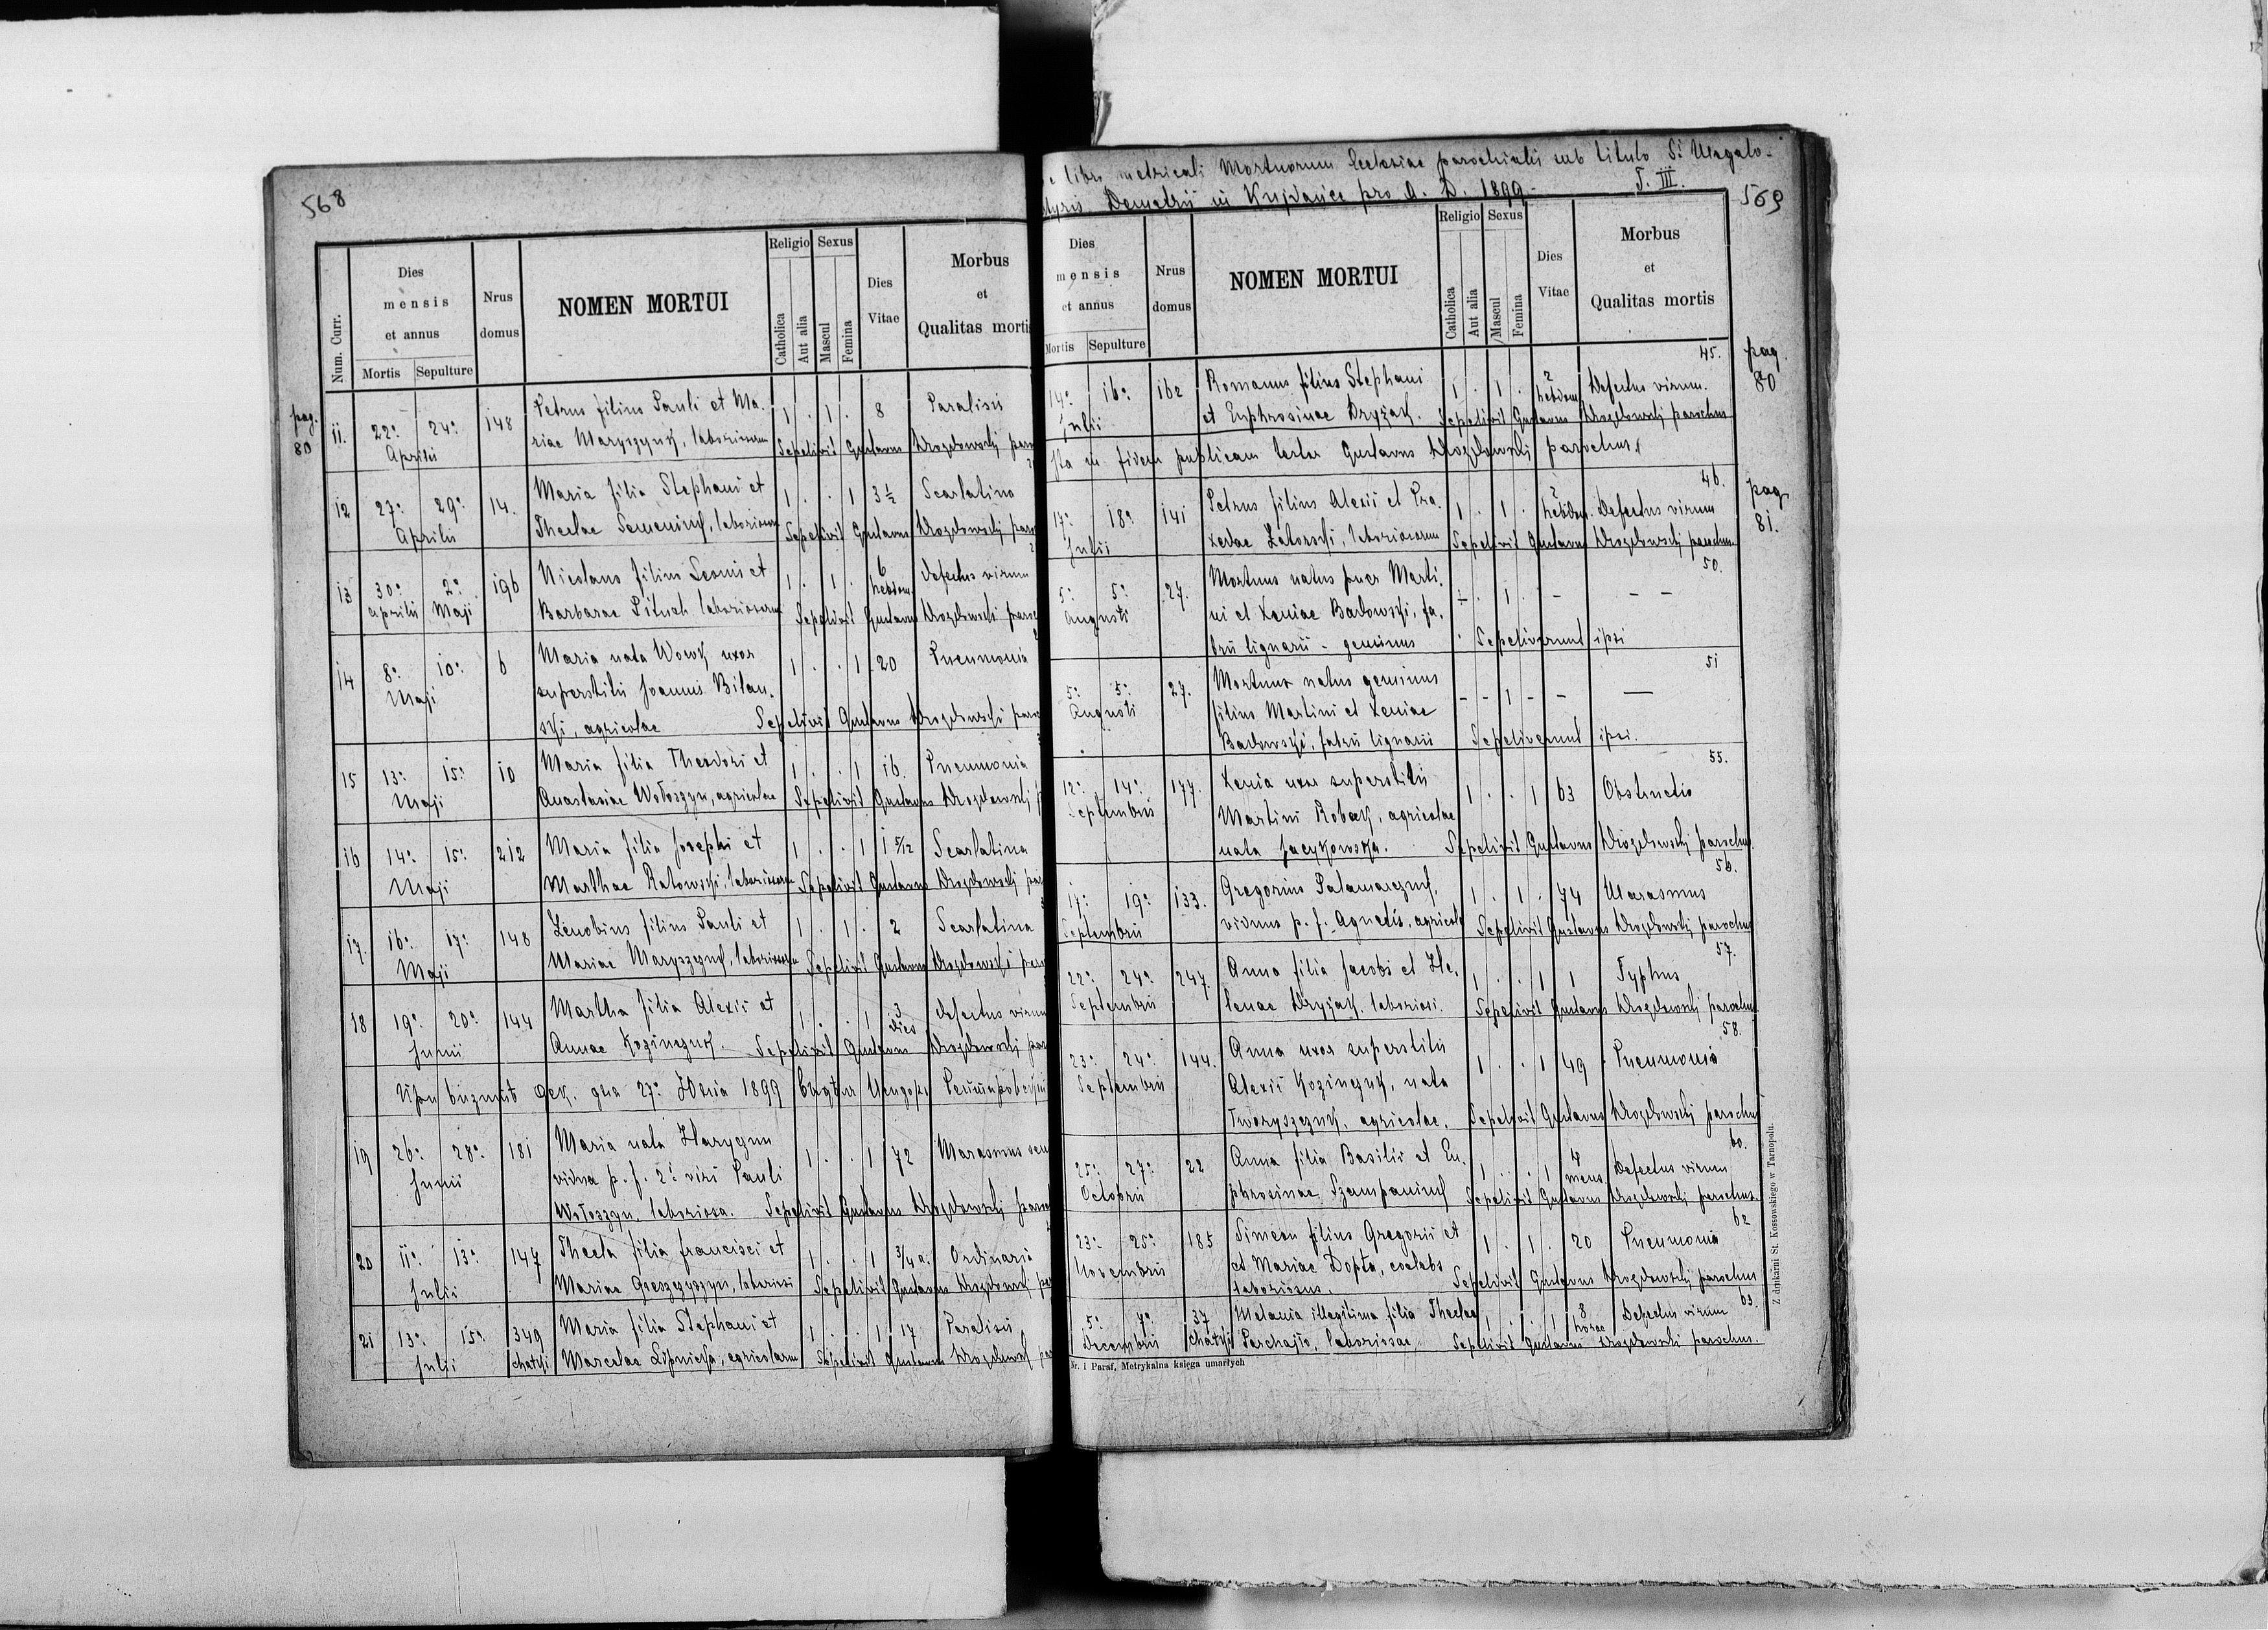 568
Num. Curr.
Dies
mensis
et annus
Mortis Sepulture
Nrus
domus
NOMEN MORTUI
Religio
Catholica
Aut alia
Sexus
Mascul
Femina
Dies
Vitae
Morbus
et
Qualitas mortis
pag.
80
11. 22. 24. 148 Petrus filius Pauli et Ma- 1 . 1 . 8 Paralisis
Aprilis riae Maryszyuk, laboriosorum Sepelivit Gustavus Drozdowskij
12 27. 29. 14. Maria filia Stephani et 1 . . 1 3 1/2 Scarlatina
Aprilis Theclae Semeniuk, laboriosorum Sepelivit Gustavus Drozdowskij
13 30. 2. 196 Nicolaus filius Leonis et 1 . 1 . 6 Defectus virium
Aprilis Maji Barbarae Pituch laboriosorum hebdom. Sepelivit Gustavus Drozdowski
14 8. 10. 6 Maria nata Wowk uxor 1 . . 1 20 Pneumonia
Maji superstitis Joannis Bilan-
ski, agricolae Sepelivit Gustavus Drozdowski
15 13. 15. 10 Maria filia Theodori et 1 . . 1 16. Pneumonia
Maji Anastasiae Wołoszyn, agricolae Sepelivit Gustavus Drozdowskij
16 14. 15. 212 Maria filia Josephi et 1 . . 1 1 5/12 Scarlatina
Maji Marthae Ratowski, laboriosorum Sepelivit Gustavus Drozdowskij
17. 16. 17. 148 Zenobius filius Pauli et 1 . 1 . 2 Scarlatina
Maji Mariae Maryszyuk, laboriosorum Sepelivit Gustavus Drozdowski
18 19. 20. 144 Martha filia Alexii et 1 . . 1 3 dies Defectus virium
Junii Annae Kozinczuk. Sepelivit Gustavus Drozdowskij
При визиті дек. дня 27. 1899
19 26. 28. 181 Maria nata Harygun 1 . . 1 72 Marasmus
Junii vidua p. f. 2i viri Pauli
Wołoszyn, laboriosa. Sepelivit Gustavus Drozdowskij
20 11. 13. 147 Thecla filia Francisci et 1 . . 1 3/4 a. Ordinaria
Julii Mariae Grzegoszyn, laboriosi Sepelivit Gustavus Drozdowskij
21 13. 15. 349 Maria filia Stephani et 1 . . 1 17 Paralisis
Julii chatki Marcelae Lipnicka, agricolarum Sepelivit Gustavus
libro metricali Mortuorum Ecclesiae parochialis sub titulo S. Megalo-
Demetrii in Kujdańce pro A. D. 1899. T. III.
569
Dies
mensis
et annus
Mortis Sepulture
Nrus
domus
NOMEN MORTUI
Religio
Catholica
Aut alia
Sexus
Mascul
Femina
Dies
Vitae
Morbus
et
Qualitas mortis
45. pag.
80
14. 16. 162 Romanus filius Stephani 1 . 1 . 2 hebdom Defectus virium.
Julii et Euphrosinae Dryżak. Sepelivit Gustavus Drozdowskij parochus
Ita in fidem publicam testor Gustavus Drozdowskij parochus.
46. pag.
81.
17. 18. 141 Petrus filius Alexii et Pra- 1 . 1 . 2 hebdom. Defectus virium
Julii xedae Zatorski, laboriosorum Sepelivit Gustavus Drozdowskij parochus
50.
5. 5. 27. Mortuus natus puer Marti- 1 . - - -
Augusti ni et Xeniae Badowski, fa-
bri lignarii - geminus Sepeliverunt ipsi
51
5. 5. 27. Mortuus natus geminus - - 1 - - —
Augusti filius Martini et Xeniae
Badowski, fabri lignarii Sepeliverunt ipsi.
55.
12. 14. 177. Xenia uxor superstitis 1 . . 1 63 Obstructio
Septembris Martini Robak, agricolae
nata Jacykowska. Sepelivit Gustavus Drozdowskij parochus.
56.
17. 19. 133. Gregorius Palamarczuk, 1 . 1 . 74 Marasmus
Septembris viduus p. f. Agnetis, agricola Sepelivit Gustavus Drozdowskij parochus
57.
22. 24. 247. Anna filia Jacobi et He- 1 . . 1 1 Typhus
Septembris lenae Dryżak, laboriosi. Sepelivit Gustavus Drozdowskij parochus
58.
23. 24. 144. Anna uxor superstitis 1 . . 1 49 Pneumonia
Septembris Alexii Kozinczuk, nata
Tworyszczuk, agricolae. Sepelivit Gustavus Drozdowskij parochus
60.
25. 27. 22 Anna filia Basilii et Eu- 1 . . 1 4 mens. Defectus virium
Octobris phrosinae Szempaniuk Sepelivit Gustavus Drozdowskij parochus.
62
23. 25. 185 Simeon filius Gregorii et 1 . 1 . 20 Pneumonia
Novembris et Mariae Dopta, coelebs
laboriosus. Sepelivit Gustavus Drozdowskij parochus
63.
5. 7. 37 Melania illegitima filia Theclae 1 . . 1 8 horae Defectus virium
Decembris chatki Parchajło, laboriosae. Sepelivit Gustavus Drozdowski parochus.
Nr. 1 Paraf, Metrykalna księga umarłych
Z drukarni St. Kossowskiego w Tarnopolu.